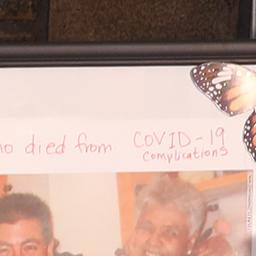 died from COVID-19
complications